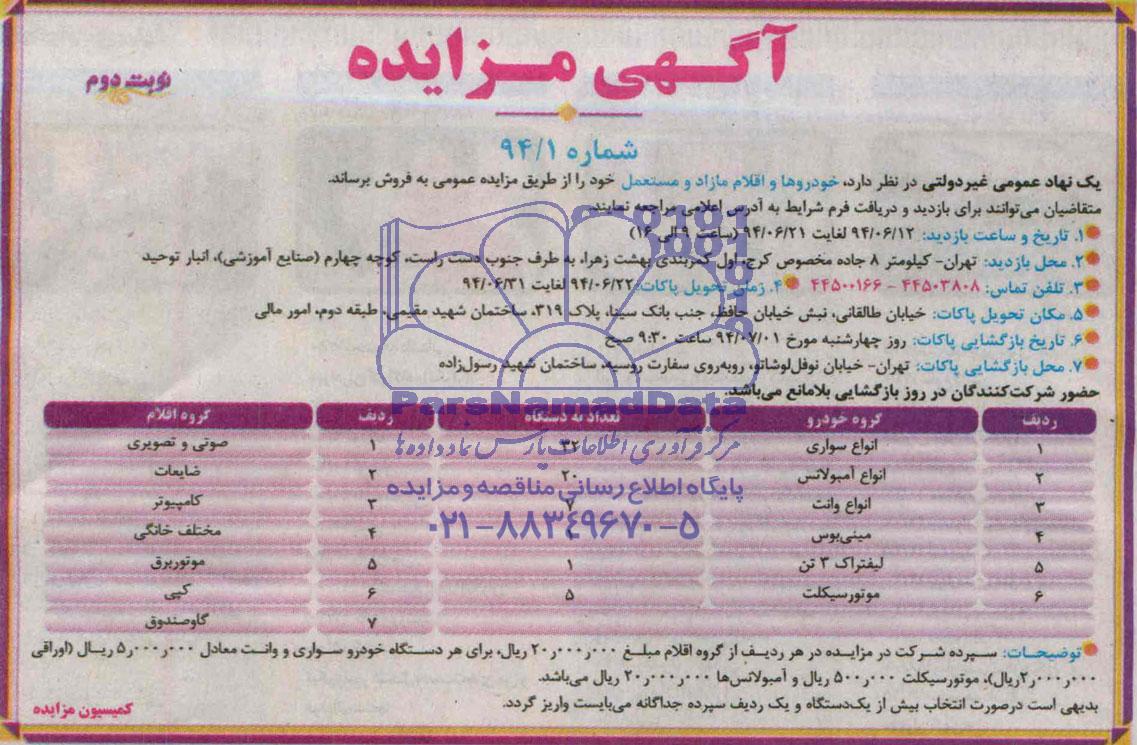 آگهی مزایده
نوبت دوم
شماره ۹۴/۱
یک نهاد عمومی غیردولتی در نظر دارد، خودروها و اقلام مازاد و مستعمل خود را از طریق مزایده عمومی به فروش برساند.
متقاضیان می‌توانند برای بازدید و دریافت فرم شرایط به آدرس اعلامی مراجعه نمایند.
۱. تاریخ و ساعت بازدید: ۹۴/۰۶/۱۲ لغایت ۹۴/۰۶/۲۱ (ساعت ۹ الی ۱۶)
۲. محل بازدید: تهران- کیلومتر ۸ جاده مخصوص کرج، اول کمربندی بهشت زهرا، به طرف جنوب دست راست، کوچه چهارم (صنایع آموزشی)، انبار توحید
۳. تلفن تماس: ۴۴۵۰۳۸۰۸ - ۴۴۵۰۰۱۶۶ ۴. زمان تحویل پاکات: ۹۴/۰۶/۲۲ لغایت ۹۴/۰۶/۳۱
۵. مکان تحویل پاکات: خیابان طالقانی، نبش خیابان حافظ، جنب بانک سینا، پلاک ۳۱۹، ساختمان شهید مقیمی، طبقه دوم، امور مالی
۶. تاریخ بازگشایی پاکات: روز چهارشنبه مورخ ۹۴/۰۷/۰۱ ساعت ۹:۳۰ صبح
۷. محل بازگشایی پاکات: تهران- خیابان نوفل‌لوشاتو، روبه‌روی سفارت روسیه، ساختمان شهید رسول‌زاده
حضور شرکت‌کنندگان در روز بازگشایی بلامانع می‌باشد.
ParsNamadData
ردیف گروه خودرو تعداد به دستگاه ردیف گروه اقلام
۱ انواع سواری ۳۲ ۱ صوتی و تصویری
مرکز فرآوری اطلاعات پارس نماد داده‌ها
۲ انواع آمبولانس ۲۰ ۲ ضایعات
پایگاه اطلاع رسانی مناقصه و مزایده
۳ انواع وانت ۷ ۳ کامپیوتر
۰۲۱-۸۸۳۴۹۶۷۰-۵
۴ مینی‌بوس ۴ مختلف خانگی
۵ لیفتراک ۳ تن ۱ ۵ موتوربرق
۶ موتورسیکلت ۵ ۶ کپی
۷ گاوصندوق
توضیحات: سپرده شرکت در مزایده در هر ردیف از گروه اقلام مبلغ ۲۰ر۰۰۰ر۰۰۰ ریال، برای هر دستگاه خودرو سواری و وانت معادل ۵ر۰۰۰ر۰۰۰ ریال (اوراقی
۲ر۰۰۰ر۰۰۰ریال)، موتورسیکلت ۵۰۰ر۰۰۰ ریال و آمبولانس‌ها ۲۰ر۰۰۰ر۰۰۰ ریال می‌باشد.
بدیهی است درصورت انتخاب بیش از یک‌دستگاه و یک ردیف سپرده جداگانه می‌بایست واریز گردد.
کمیسیون مزایده